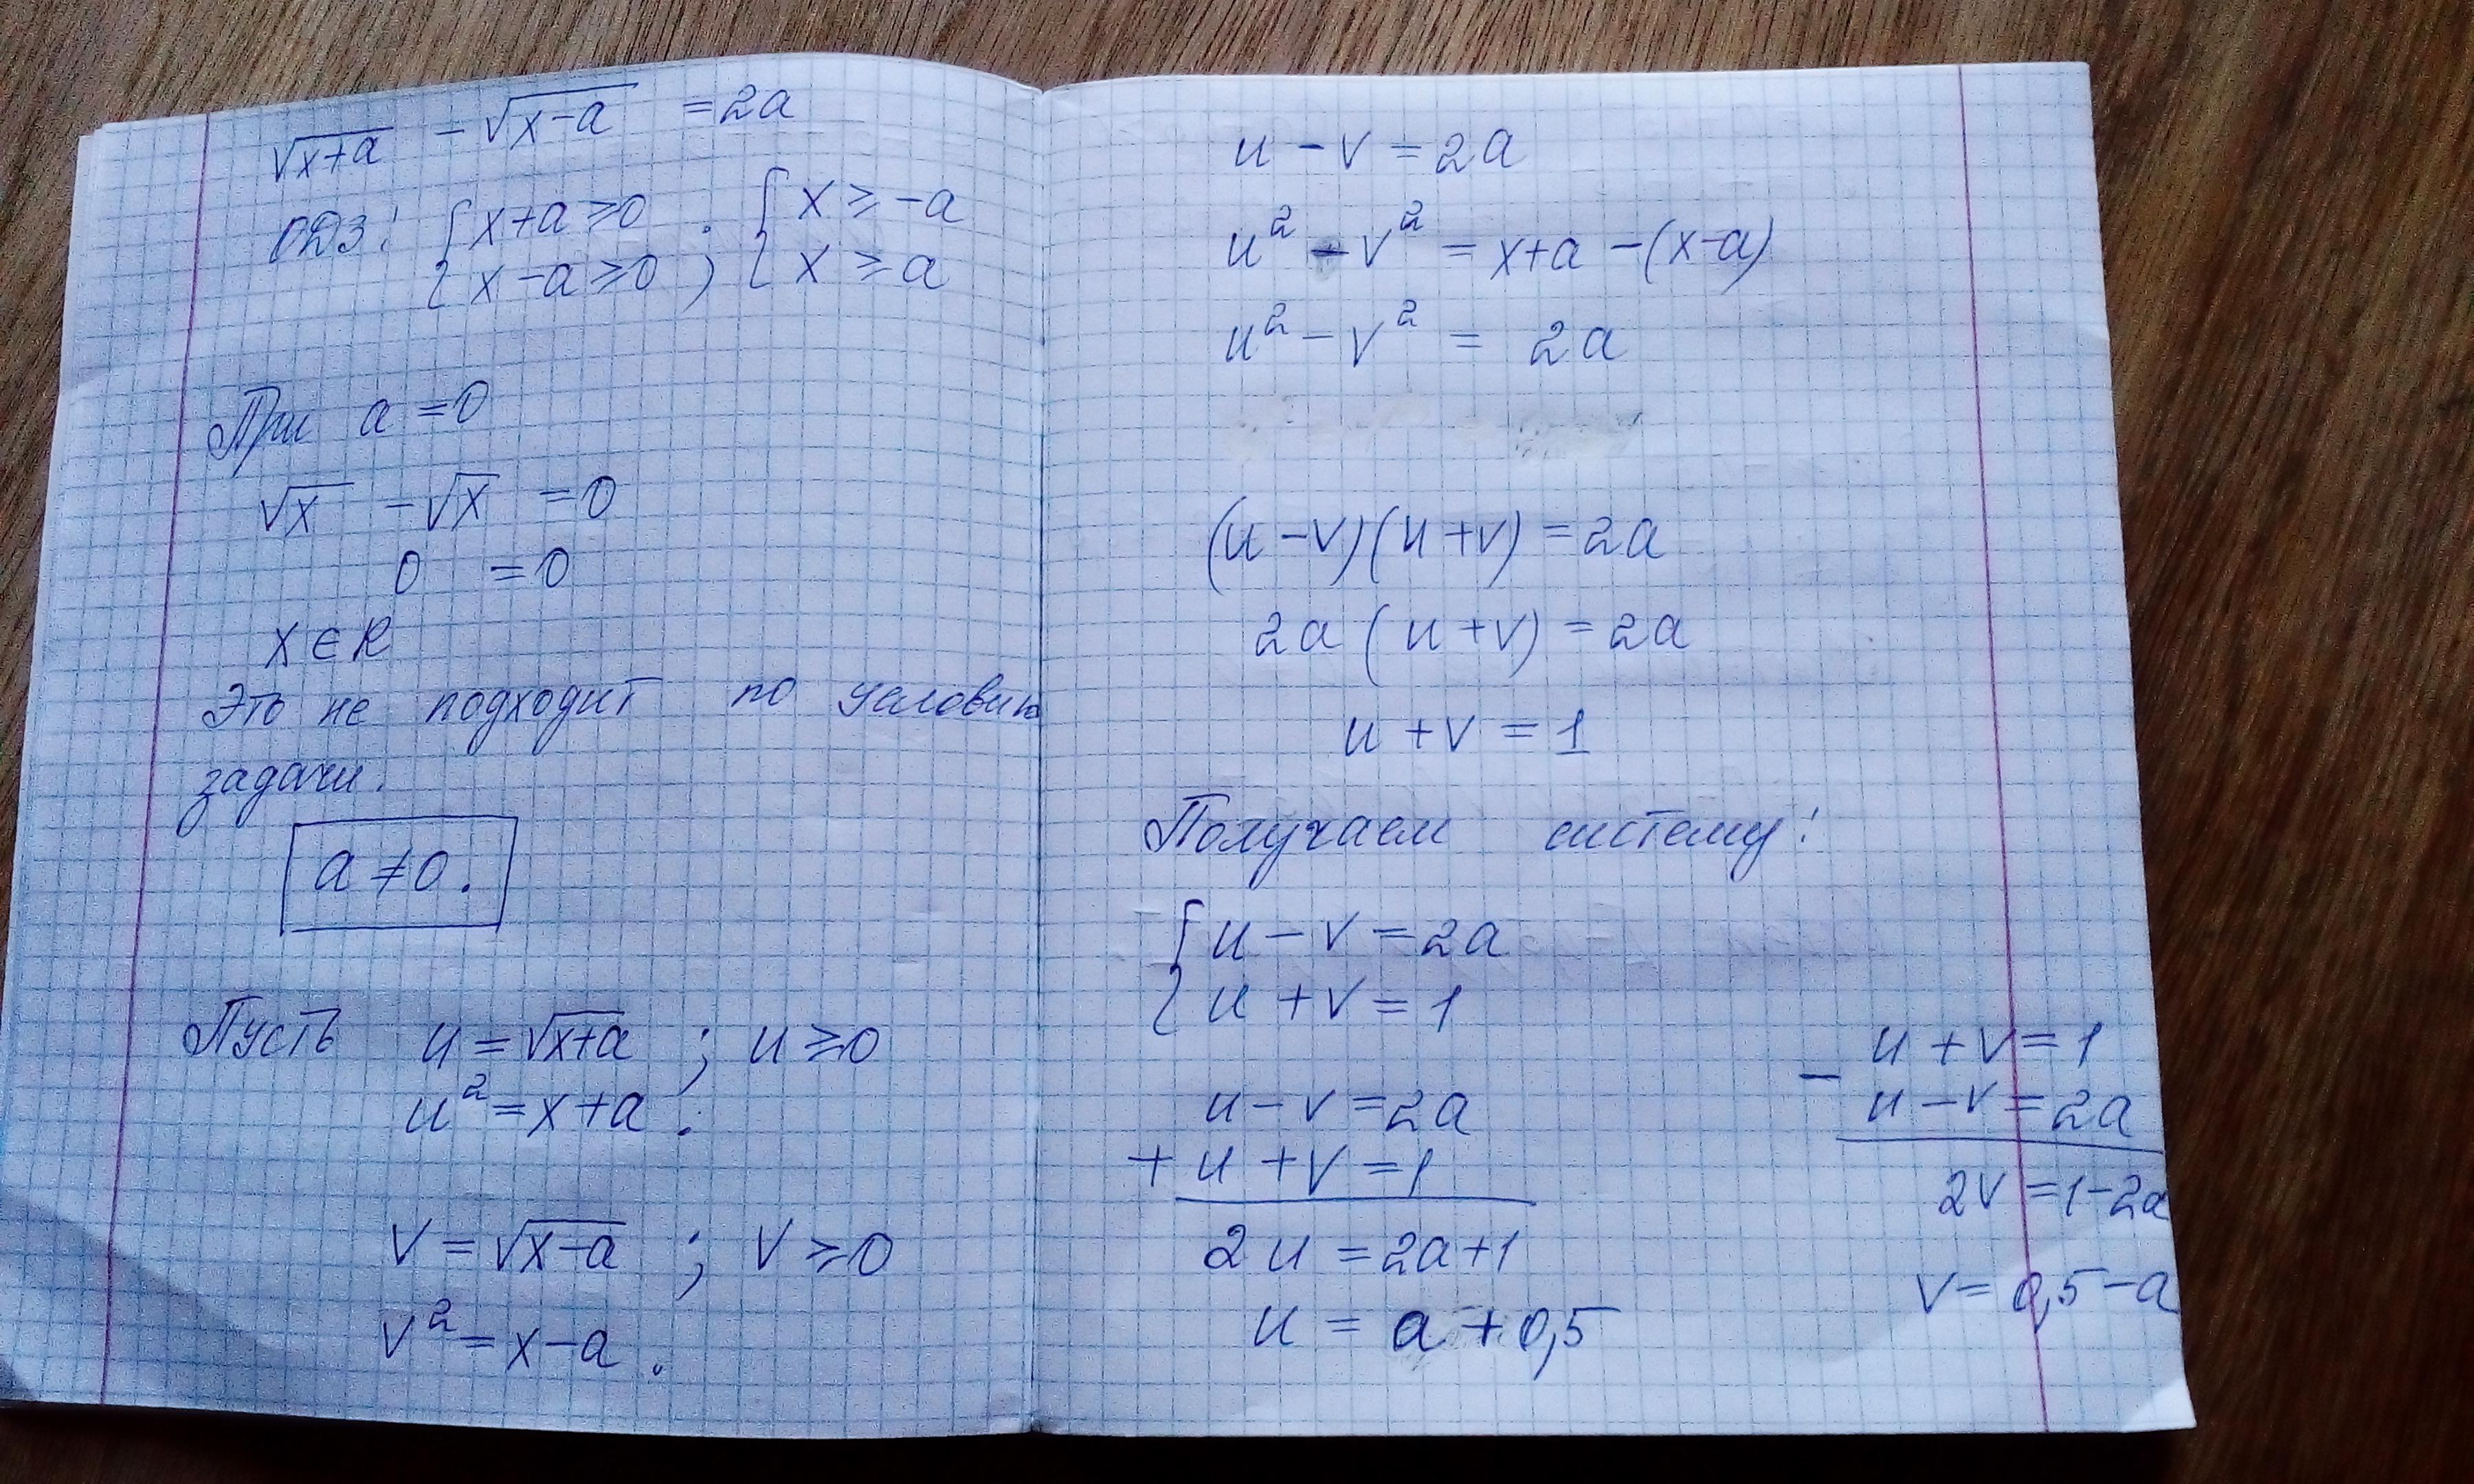 √x+a - √x-a = 2a
ОДЗ: { x+a ≥ 0 ; { x ≥ -a
{ x-a ≥ 0 ; { x ≥ a
При a = 0
√x - √x = 0
0 = 0
x ∈ R
Это не подходит по условию
задачи.
a ≠ 0.
Пусть u = √x+a ; u ≥ 0
u² = x+a .
v = √x-a ; v ≥ 0
v² = x-a .
u - v = 2a
u² - v² = x+a -(x-a)
u² - v² = 2a
(u - v)(u + v) = 2a
2a (u + v) = 2a
u + v = 1
Получаем систему:
{ u - v = 2a
{ u + v = 1
u - v = 2a
+ u + v = 1
2u = 2a+1
u = a + 0,5
- u + v = 1
u - v = 2a
2v = 1-2a
v = 0,5-a